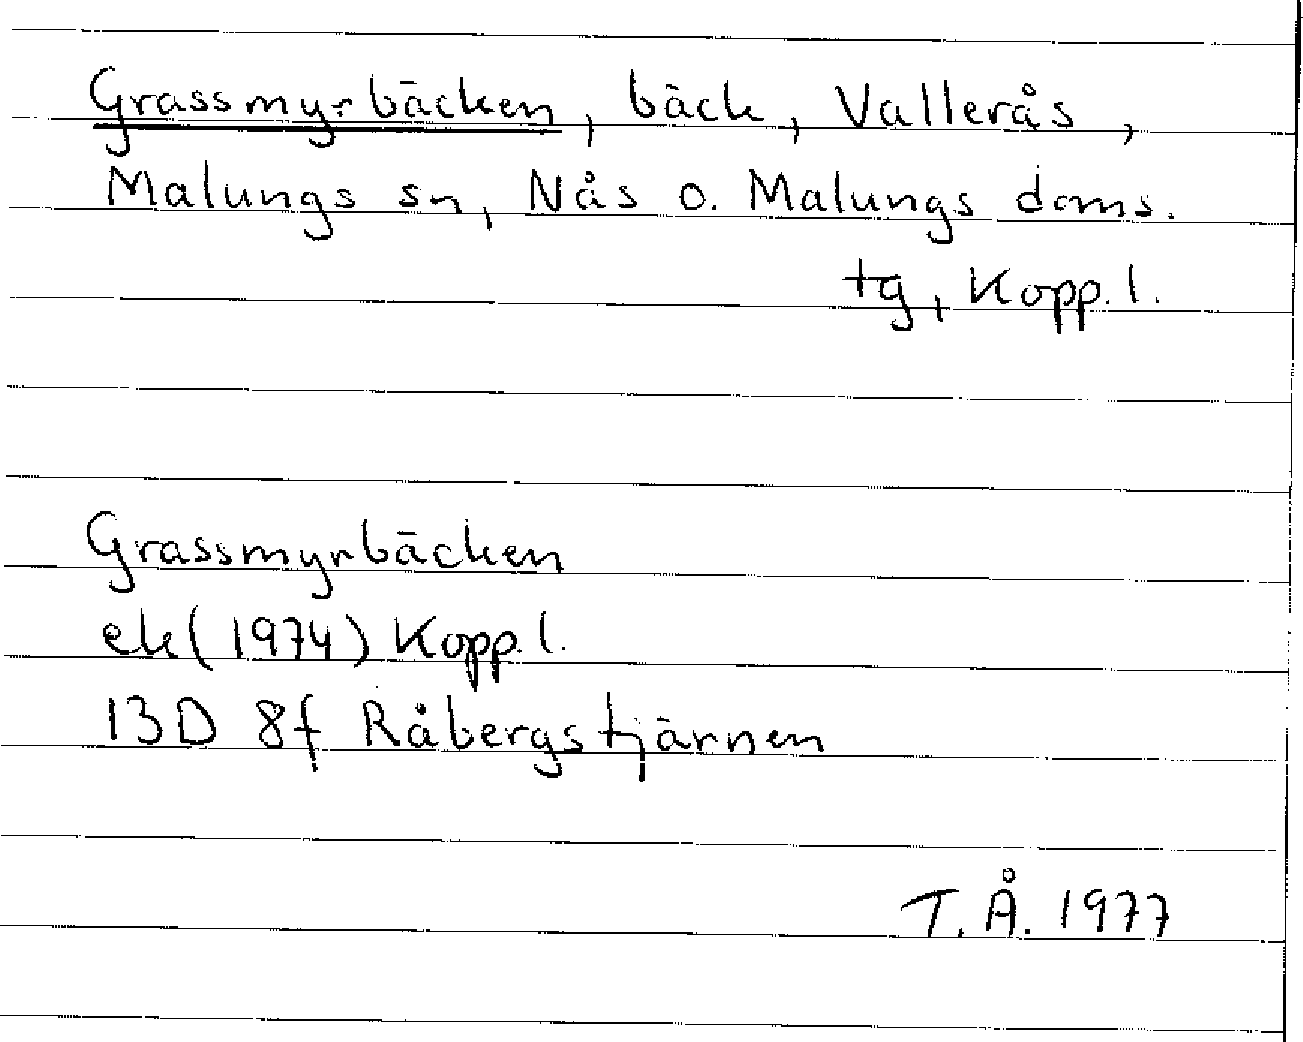 Grassmyrbäcken, bäck, Vallerås,
Malungs sn, Nås o. Malungs doms.
tg, Kopp.l.
Grassmyrbäcken
ek(1974) Kopp.l.
13D 8f Råbergstjärnen
T.Å. 1977